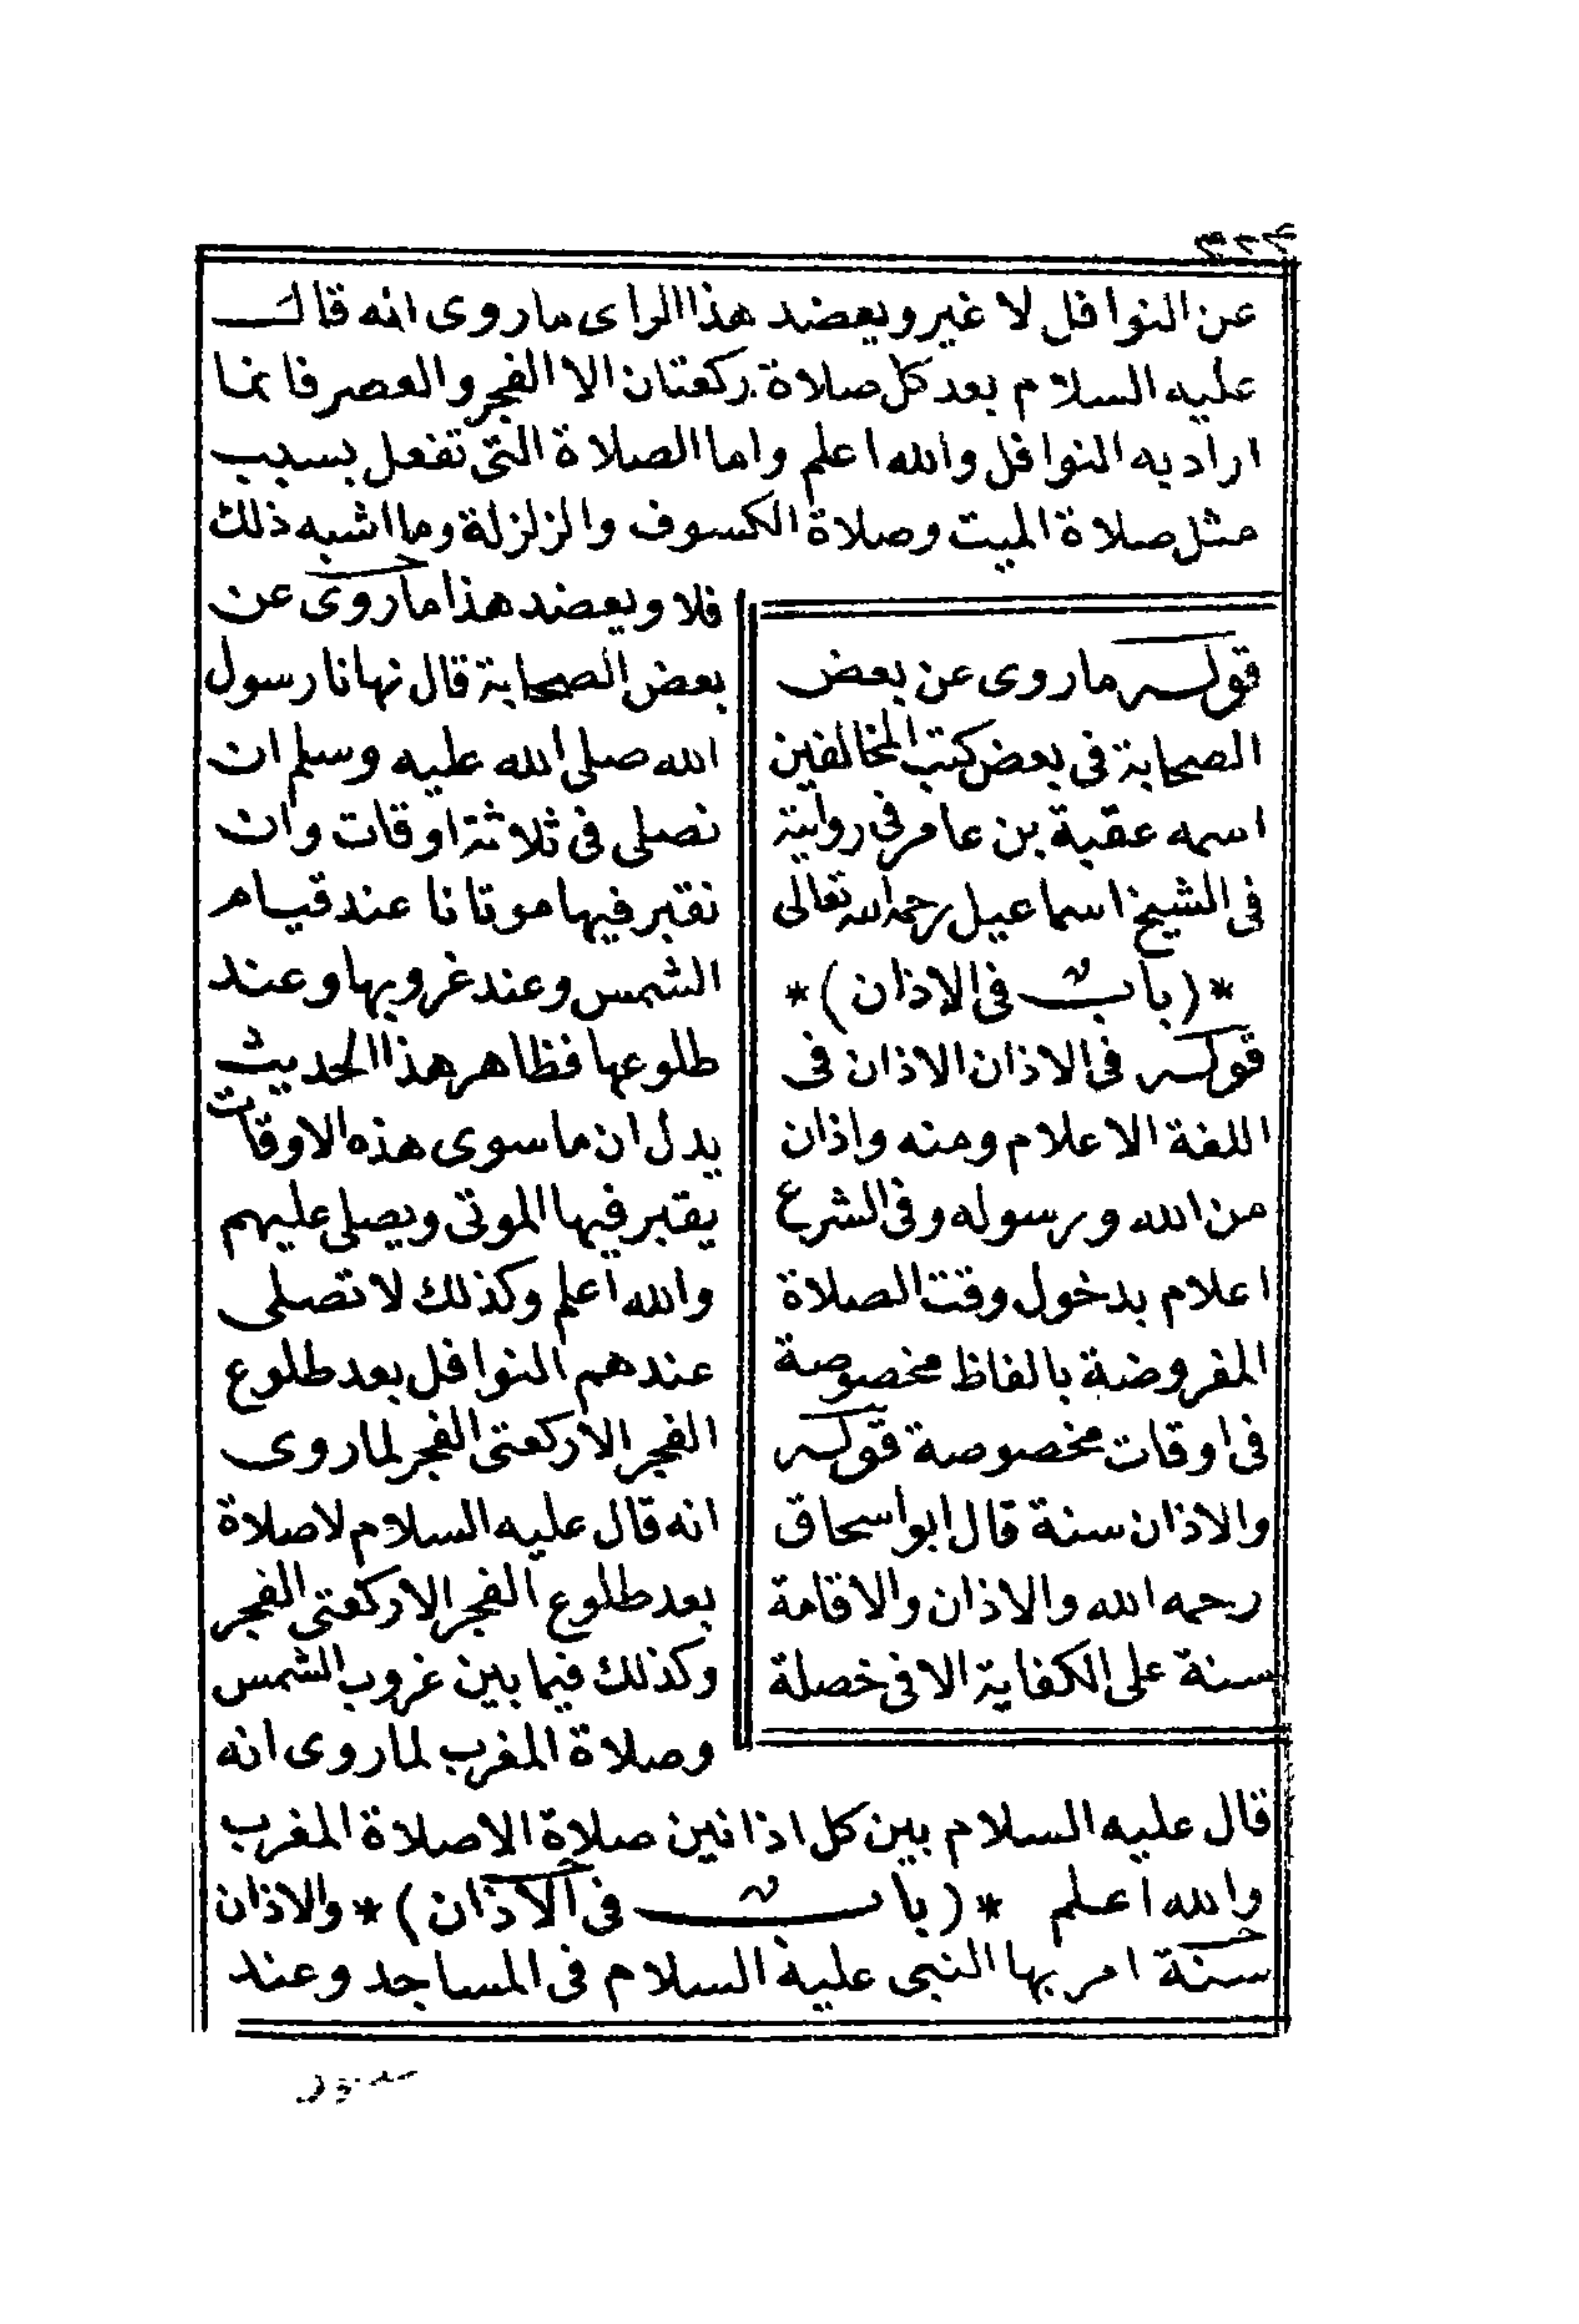 عن النوافل لا غير ويعضد هذا الراى ماروى انه قال
عليه السلام بعد كل صلاة ركعتان الا الفجر والعصر فانما
اراد به النوافل والله اعلم واما الصلاة التى تفعل بسبب
مثل صلاة الميت وصلاة الكسوف والزلزلة وما اشبه ذلك
فلا ويعضد هذا ماروى عن
بعض الصحابة قال نهانا رسول
الله صلى الله عليه وسلم ان
نصلى فى ثلاثة اوقات وان
نقبر فيها موتانا عند قيام
الشمس وعند غروبها وعند
طلوعها فظاهر هذا الحديث
يدل ان ماسوى هذه الاوقات
يقبر فيها الموتى ويصلى عليهم
والله اعلم وكذلك لا تصلى
عندهم النوافل بعد طلوع
الفجر الا ركعتى الفجر لماروى
انه قال عليه السلام لا صلاة
بعد طلوع الفجر الا ركعتى الفجر
وكذلك فيما بين غروب الشمس
وصلاة المغرب لماروى انه
قال عليه السلام بين كل اذانين صلاة الا صلاة المغرب
والله اعلم *(باب فى الاذان)* والاذان
سنة امر بها النبى عليه السلام فى المساجد وعند
قوله ماروى عن بعض
الصحابة فى بعض كتب المخالفين
اسمه عقبة بن عامر فى رواية
فى الشيخ اسماعيل رحمه الله تعالى
*(باب فى الاذان)*
قوله فى الاذان الاذان فى
اللغة الاعلام ومنه واذان
من الله ورسوله وفى الشرع
اعلام بدخول وقت الصلاة
المفروضة بالفاظ مخصوصة
فى اوقات مخصوصة قوله
والاذان سنة قال ابو اسحاق
رحمه الله والاذان والاقامة
سنة على الكفاية الا فى خصلة